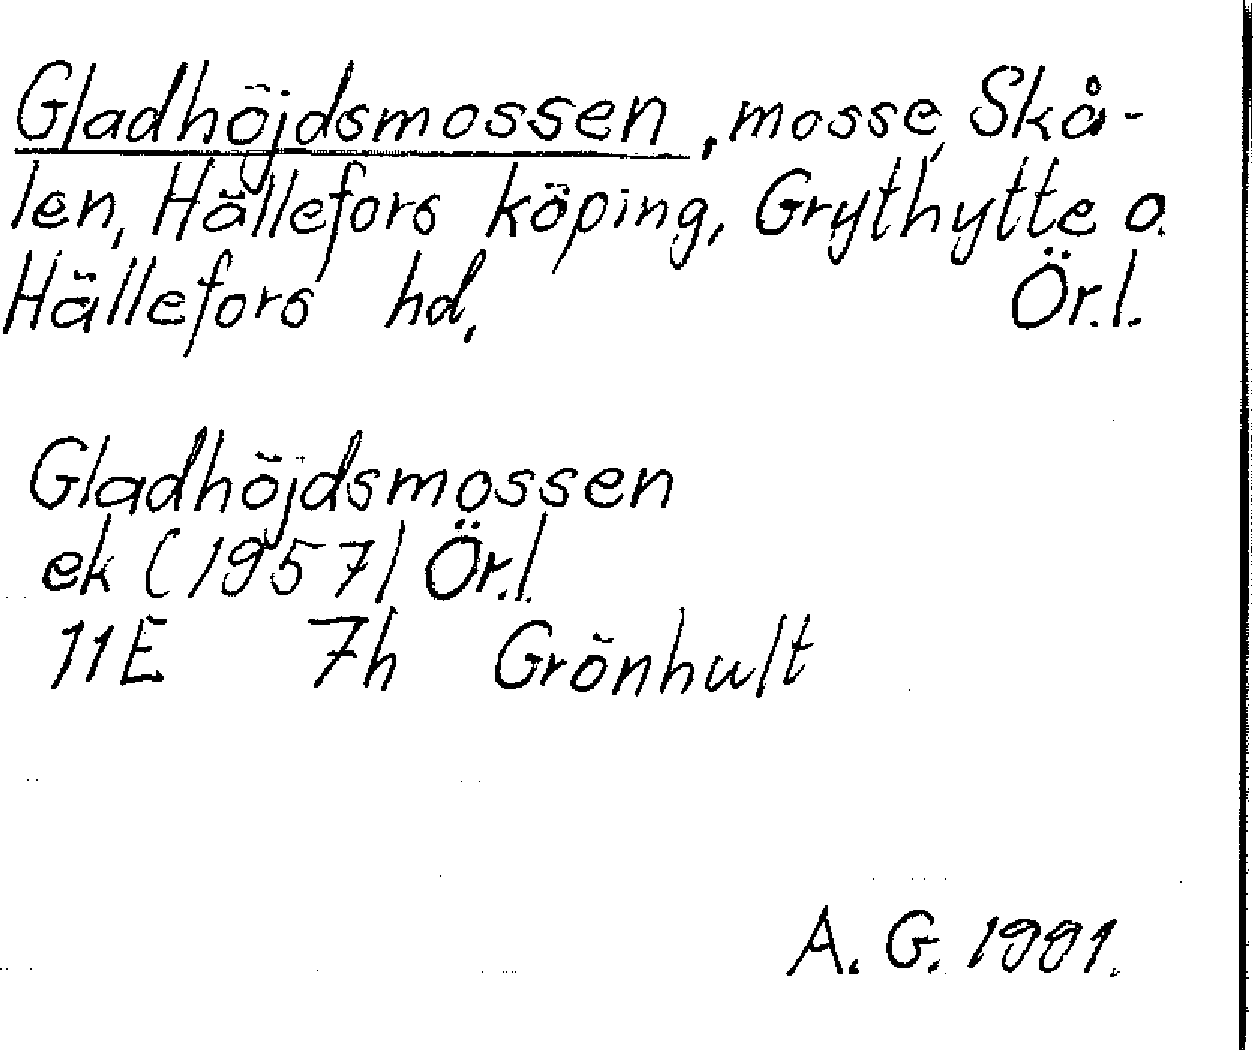 Gladhöjdsmossen, mosse, Skå-
len, Hällefors köping, Grythytte o.
Hällefors hd, Ör.l.
Gladhöjdsmossen
ek (1957) Ör.l.
11E 7h Grönhult
A. G. 1991.